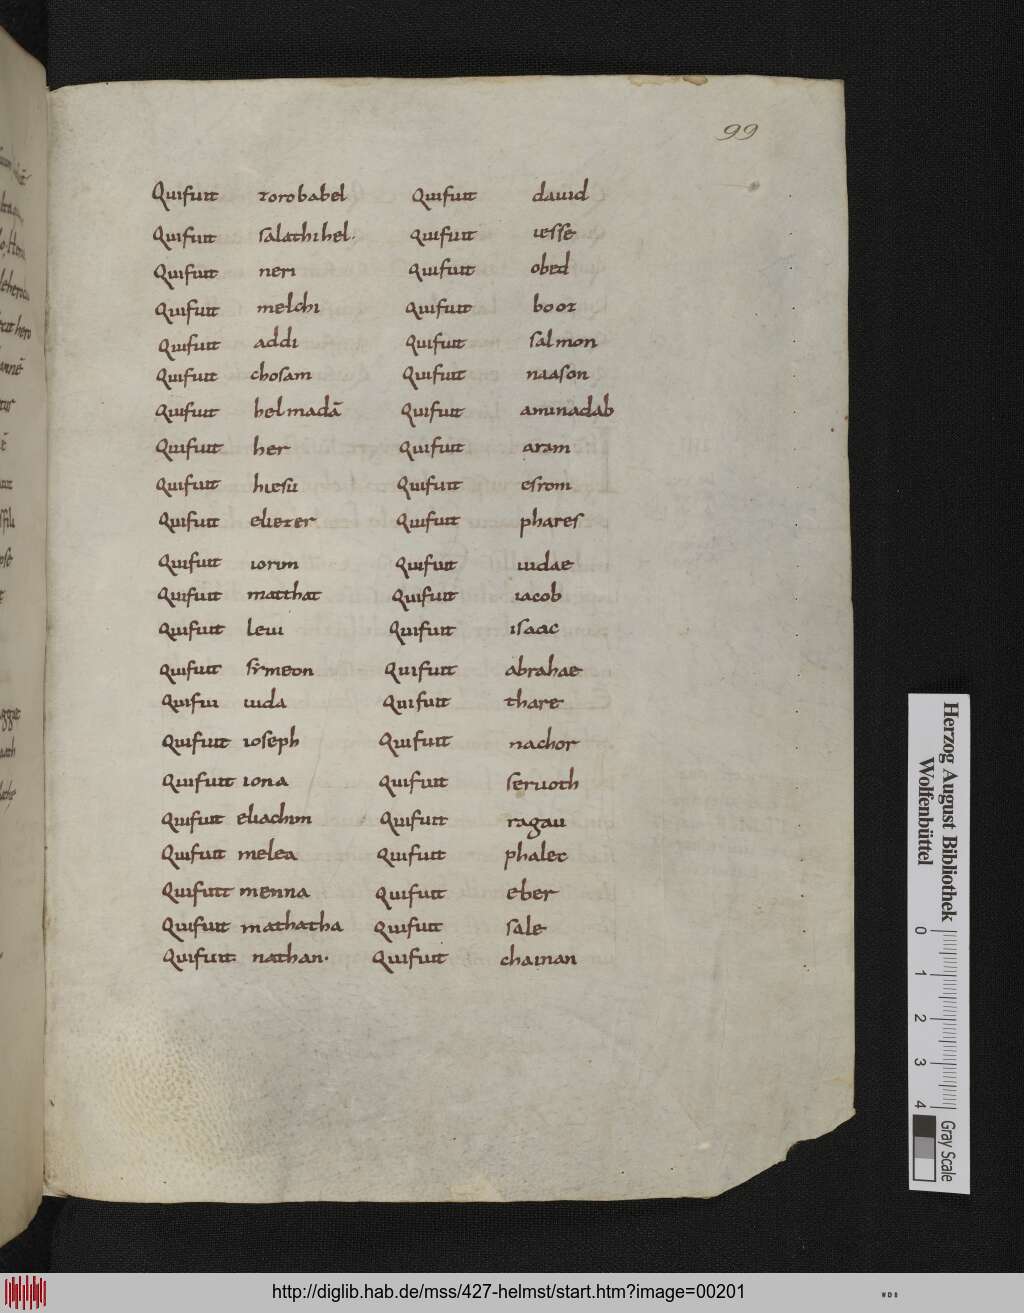 99
Quifuit zorobabel
Quifuit salathihel·
Quifuit neri
Quifuit melchi
Quifuit addi
Quifuit chosam
Quifuit helmadā
Quifuit her
Quifuit hiesu
Quifuit eliezer
Quifuit iorim
Quifuit matthat
Quifuit leui
Quifuit sẏmeon
Quifui iuda
Quifuit ioseph
Quifuit iona
Quifuit eliachim
Quifuit melea
Quifuit menna
Quifuit mathatha
Quifuit nathan·
Quifuit dauid
Quifuit iesse
Quifuit obed
Quifuit booz
Quifuit salmon
Quifuit naason
Quifuit aminadab
Quifuit aram
Quifuit esrom
Quifuit phares
Quifuit iudae
Quifuit iacob
Quifuit isaac
Quifuit abrahae
Quifuit thare
Quifuit nachor
Quifuit seruoth
Quifuit ragau
Quifuit phalec
Quifuit eber
Quifuit sale
Quifuit chainan
Herzog August Bibliothek
Wolfenbüttel
0 1 2 3 4 Gray Scale
http://diglib.hab.de/mss/427-helmst/start.htm?image=00201